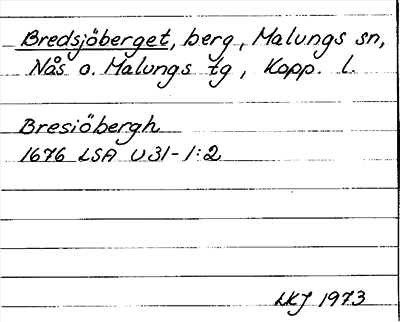 Bredsjöberget, berg, Malungs sn,
Nås o. Malungs tg, Kopp. l.
Bresiöbergh
1676 LSA U31-1:2
LKJ 1973